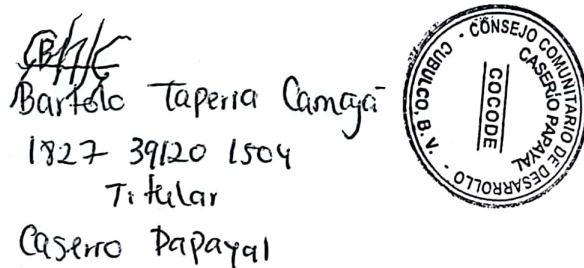 Bartolo Taperia Camajá
1827 39120 1504
Titular
Caserio Papayal
CONSEJO COMUNITARIO DE DESARROLLO
CASERIO PAPAYAL
COCODE
CUBULCO, B. V.